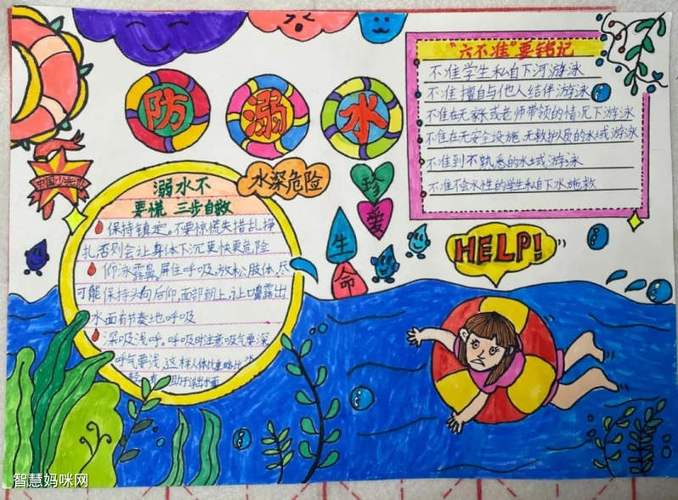 防溺水
"六不准"要铭记
不准学生私自下河游泳
不准擅自与他人结伴游泳
不准在无家长或老师带领的情况下游泳
不准在无安全设施、无救护员的水域游泳
不准到不熟悉的水域游泳
不准不会水性的学生私自下水施救
水深危险
珍爱
生命
HELP!
溺水不
要慌 三步自救
保持镇定,不要惊慌失措乱挣
扎否则会让身体下沉更快更危险
仰泳露鼻,屏住呼吸,放松肢体,尽
可能保持头向后仰,面部朝上,让口鼻露出
水面有节奏地呼吸
深吸浅呼,呼吸时注意吸气要深
呼气要浅,这样人体比重略比
智慧妈咪网